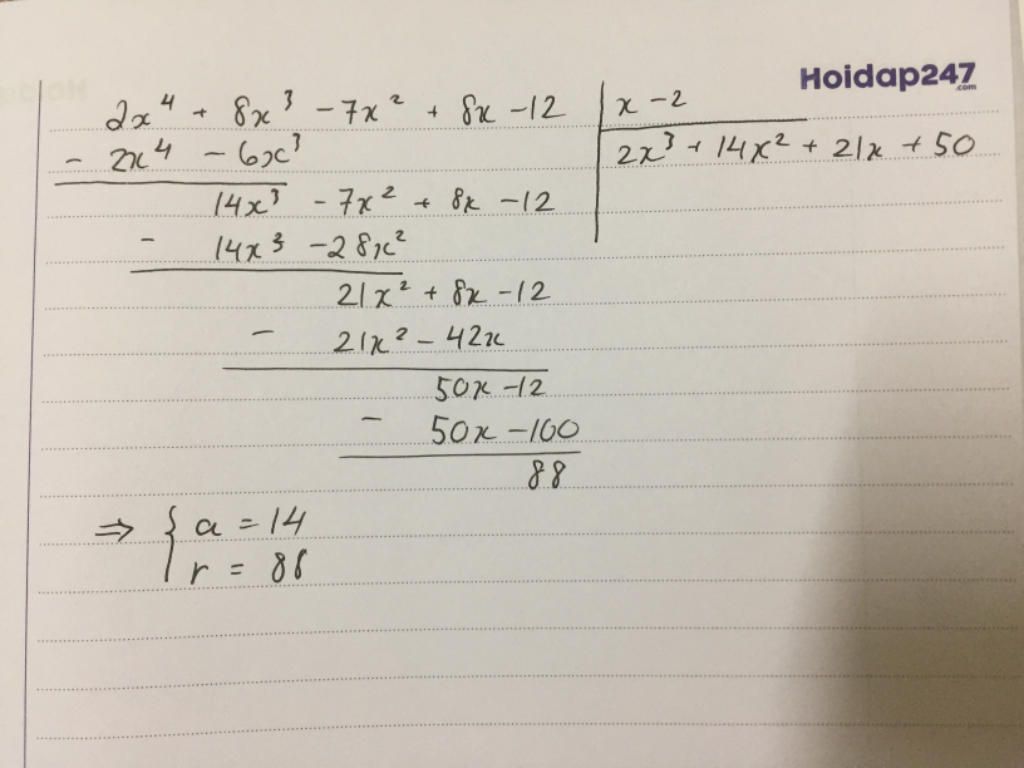 Hoidap247
.com
2x⁴ + 8x³ - 7x² + 8x - 12 | x - 2
- 2x⁴ - 6x³ | 2x³ + 14x² + 21x + 50
14x³ - 7x² + 8x - 12
- 14x³ - 28x²
21x² + 8x - 12
- 21x² - 42x
50x - 12
- 50x - 100
88
⇒ { a = 14
r = 88